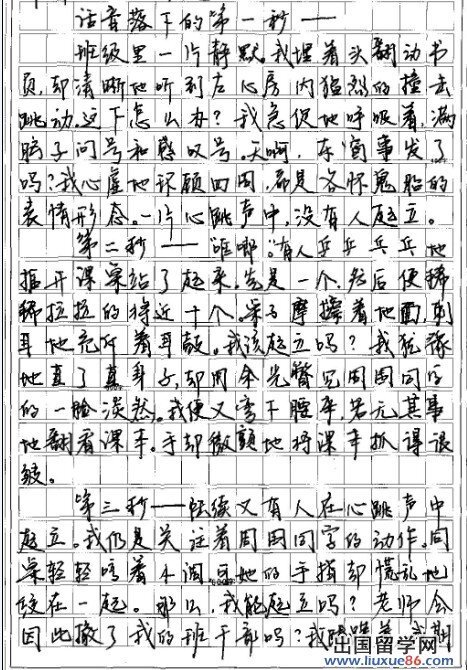 话音落下的第一秒——
班级里一片静默。我埋着头翻动书
页,却清晰地听到左心房内猛烈的撞击
跳动。这下怎么办?我急促地呼吸着,满
脑子问号和感叹号。天啊,东窗事发了
吗?我心虚地环顾四周,都是各怀鬼胎的
表情形态。一片心跳声中,没有人起立。
第二秒——"唯哪"。有人乒乒乓乓地
拒开课桌站了起来。先是一个,然后便稀
稀拉拉的将近十个。桌子摩擦着地面,刺
耳地充斥着耳鼓。我该起立吗?我犹豫
地直了直身子,却用余光瞥见周围同学
的一脸淡然。我便又弯下腰来,若无其事
地翻看课本。手却微颤地将课本抓得很
皱。
第三秒——陆续又有人在心跳声中
起立。我仍是关注着周围同学的动作。同
桌轻轻哼着小调可她的手指却慌乱地
绞在一起。那么,我能起立吗?老师会
因此撤了我的班干部吗?我
出国留学网
www.liuxue86.com